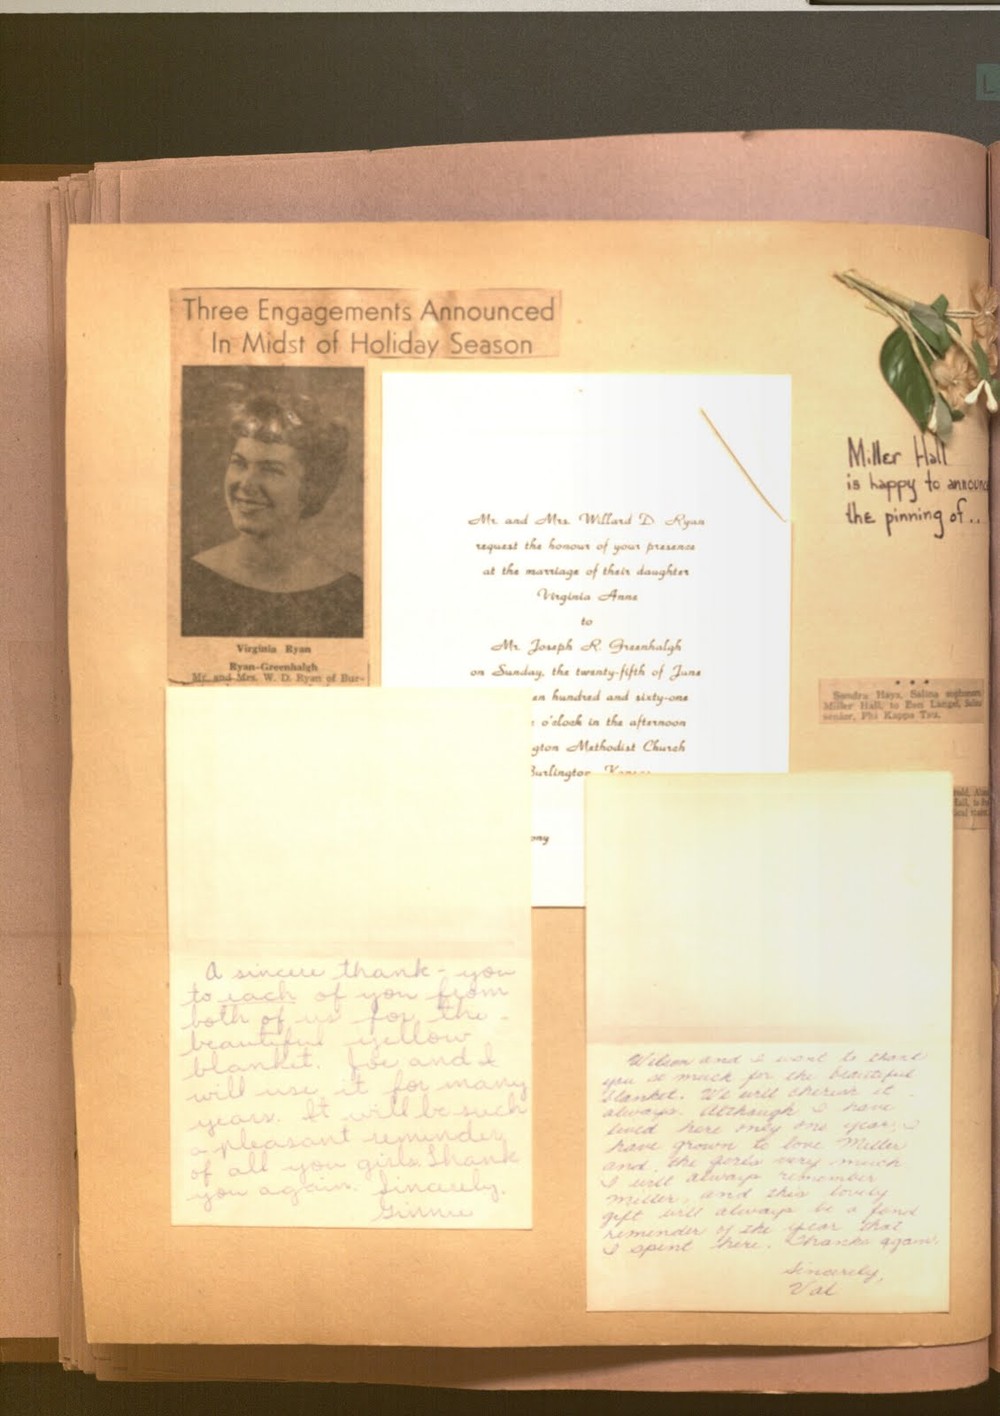 Three Engagements Announced
In Midst of Holiday Season
Virginia Ryan
Ryan-Greenhalgh
Mr. and Mrs. W. D. Ryan of Bur-
Mr. and Mrs. Willard D. Ryan
request the honour of your presence
at the marriage of their daughter
Virginia Anne
to
Mr. Joseph R. Greenhalgh
on Sunday, the twenty-fifth of June
en hundred and sixty-one
o'clock in the afternoon
gton Methodist Church
Burlington, Kansas
ony
Miller Hall
is happy to announc
the pinning of...
Sandra Hays, Salina
Miller Hall, to Ben Langel,
senior, Phi Kappa Tau.
A sincere thank-you
to each of you from
both of us for the
beautiful yellow
blanket. Joe and I
will use it for many
years. It will be such
a pleasant reminder
of all you girls. Thank
you again. Sincerely,
Ginnie
Wilson and I want to thank
you so much for the beautiful
blanket. We will cherish it
always. Although I have
lived here only one year, I
have grown to love Miller
and the girls very much
I will always remember
Miller, and this lovely
gift will always be a fond
reminder of the year that
I spent here. Thanks again.
Sincerely,
Val